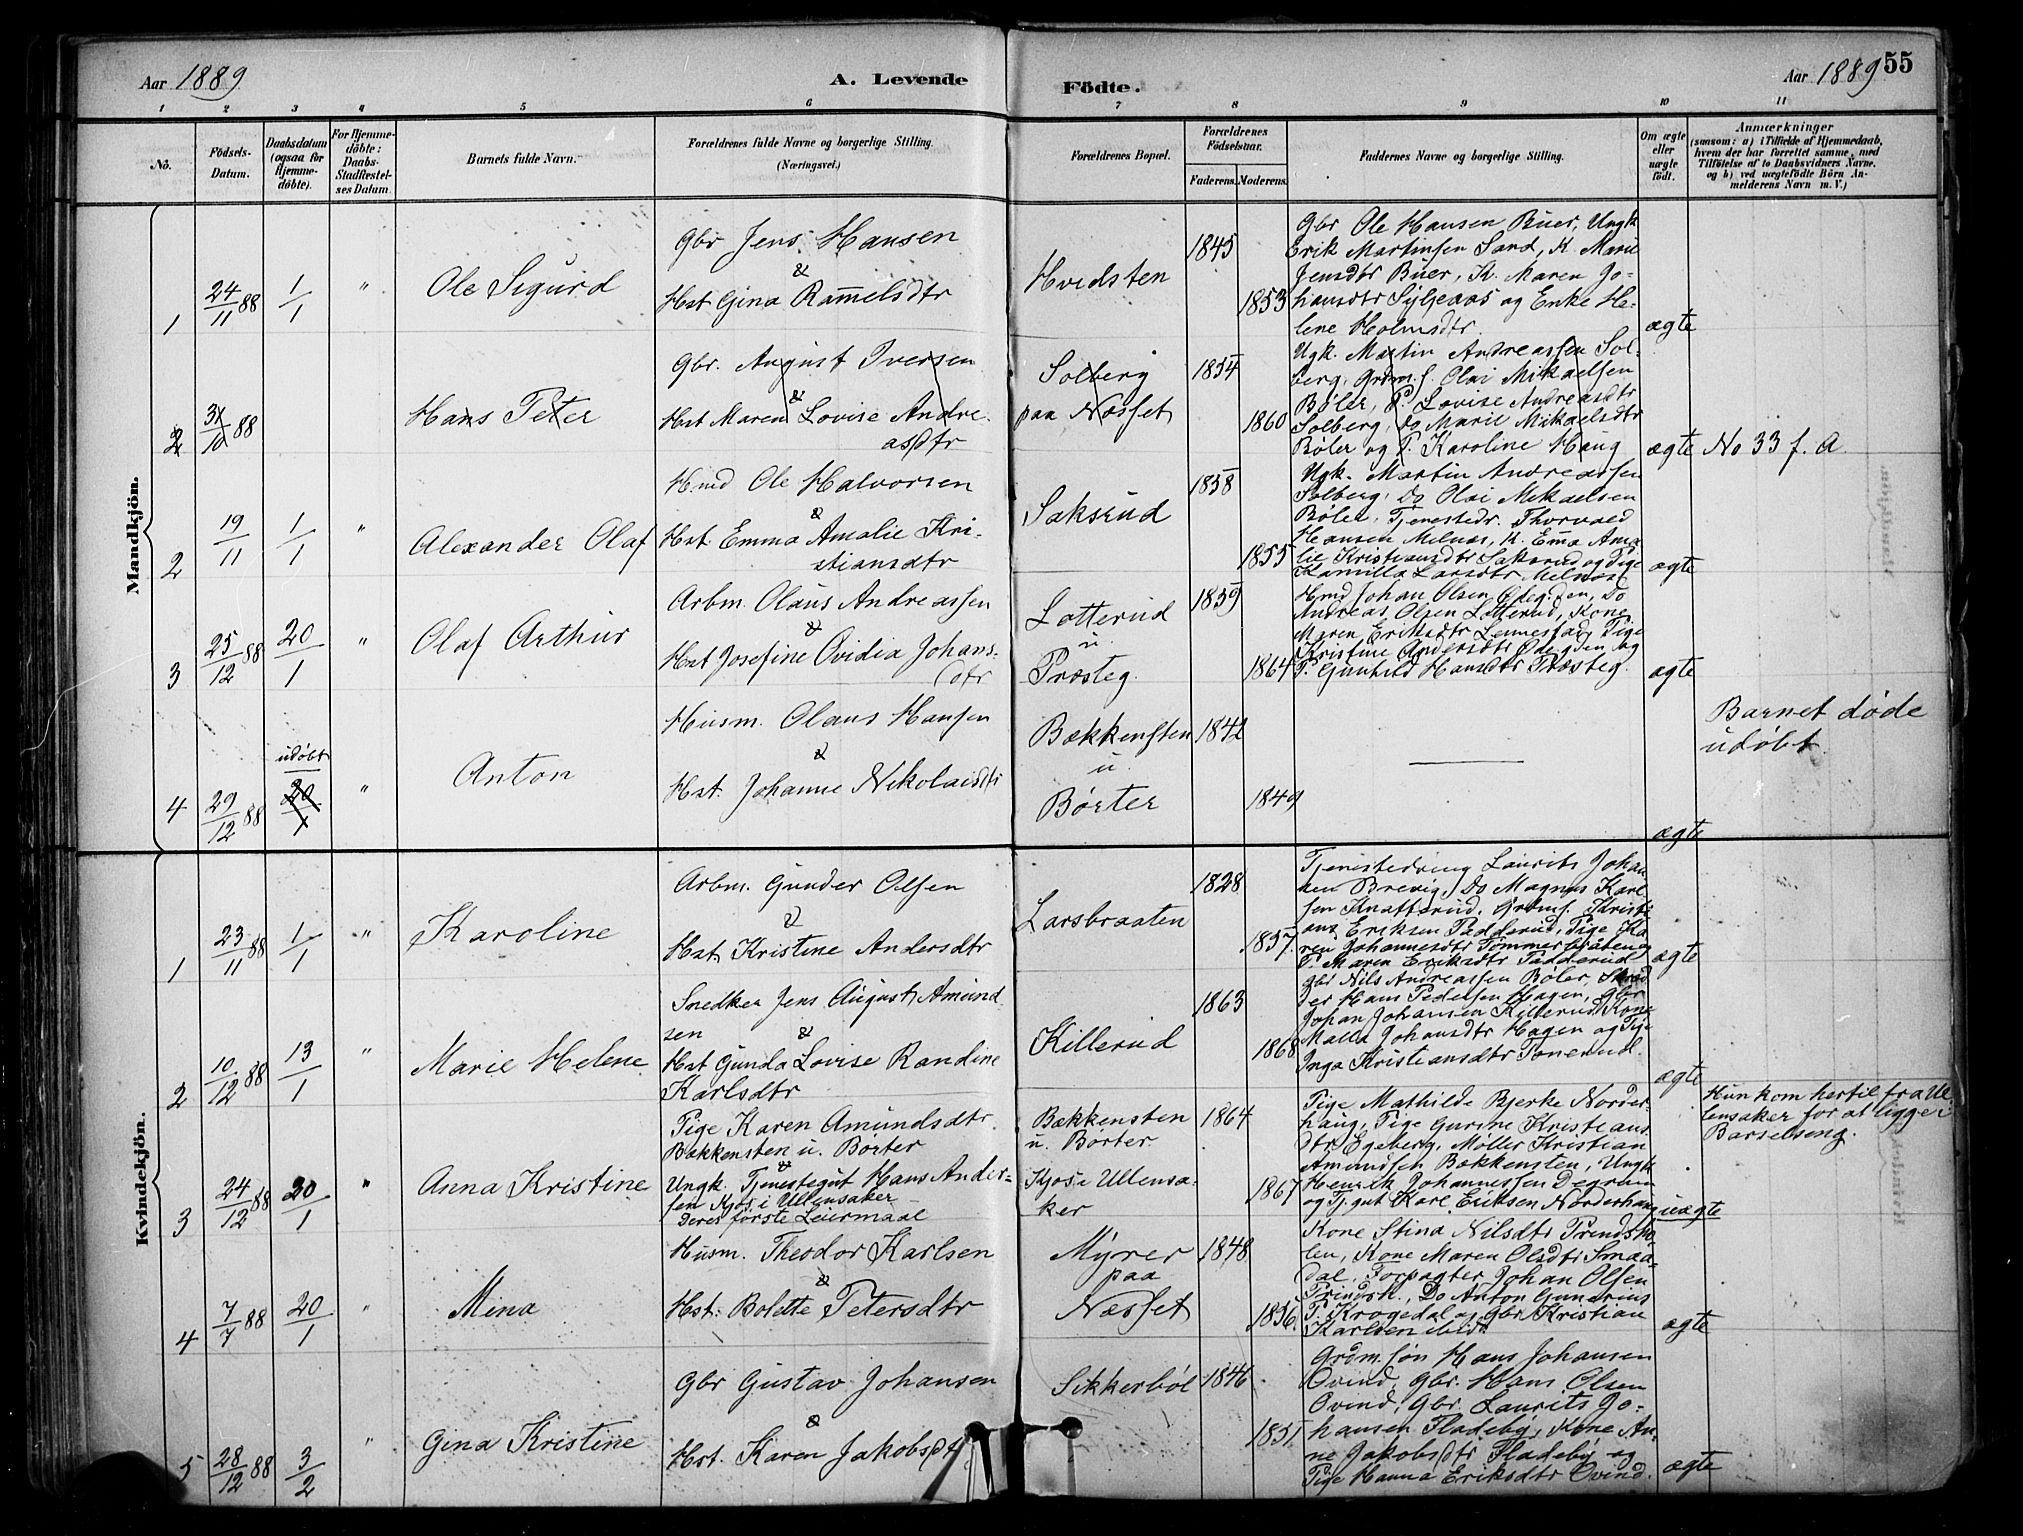 Aar 1889
A. Levende
Födte.
Aar 1889
55
1 2 3 4 5 6 7 8 9 10 11
No.
Födsels-
Datum.
Daabsdatum
(ogsaa for
Hjemme-
döbte).
For Hjemme-
döbte:
Daabs-
Stadfæstel-
ses Datum.
Barnets fulde Navn.
Forældrenes fulde Navne og borgerlige Stilling.
(Næringsvei.)
Forældrenes Bopæl.
Forældrenes
Födselsaar.
Faderens. Moderens.
Faddernes Navne og borgerlige Stilling.
Om ægte
eller
uægte
födt.
Anmærkninger
(saasom: a) i Tilfælde af Hjemmedaab,
hvem der har forrettet samme, med
Tilföielse af to Daabsvidners Navne,
og b) ved uægtefödte Börn An-
melderens Navn m. V.)
Mandkjön.
1
24/11 88
1/1
"
Ole Sigurd
Gbr Jens Hansen
&
Hst Gina Rammelsdtr
Hvidsten
1845
1853
Gbr Ole Hansen Buer, Ungk
Erik Martinsen Sand, K. Marie
Jensdtr Buer, K. Maren Jo-
hansdtr Syljeaas og Enke He-
lene Holmsdtr.
ægte
2
31/10 88
Hans Peter
Gbr. August Iversen
&
Hst Maren Lovise Andre-
asdtr
Solberg
paa Næsset
1854
1860
Ugk. Martin Andreassen Sol-
berg, Grdm.s. Olai Mikaelsen
Bøler, P. Lovise Andreasdtr
Solberg, do Marie Mikaelsdtr
Bøler og P. Karoline Haug
ægte
No 33 f. A.
2
19/11
1/1
"
Alexander Olaf
Hmd Ole Halvorsen
&
Hst. Emma Amalie Kri-
stiansdtr
Saksrud
1858
1855
Ugk. Martin Andreassen
Solberg, Do Olai Mikaelsen
Bøler, Tjenestedr. Thorvald
Hansen Melnæs, K. Emma Ama-
lie Kristiansdtr Saksrud og Pige
Kamilla Larsdtr Melnæs
ægte
3
25/12 88
20/1
"
Olaf Arthur
Arbm. Olaus Andreassen
&
Hst Josefine Ovidia Johans-
dtr
Lotterud
u
Præsteg.
1859
1864
Hmd Johan Olsen Ødegden, Do
Andreas Olsen Lotterud, Kone
Maren Eriksdtr Lennestad, Pige
Kristine Andersdtr Ødegden og
P. Gunhild Hansdtr Præsteg.
ægte
4
29/12 88
udøbt
20/1
"
Anton
Husm. Olaus Hansen
&
Hst. Johanne Nikolaisdtr
Bækkensten
u.
Børter
1842
1849
ægte
Barnet døde
udøbt.
Kvindekjön.
1
23/11 88
1/1
"
Karoline
Arbm. Gunder Olsen
&
Hst. Kristine Andersdtr
Larsbraaten
1828
1857.
Tjenestedreng Laurits Johan
sen Brevig, Do Magnus Karl
sen Knatterud, Grdms. Kristi
ans Eriksen Padderud, Pige Ka
ren Johannesdtr Tømmerbråten og
P. Maren Eriksdtr Padderud
ægte
2
10/12 88
13/1
"
Marie Helene
Snedker Jens August Amund
sen &
Hst Gunda Lovise Randine
Karlsdtr
Killerud
1863
1868
Gbr Nils Andreassen Bøler, Skræd
der Hans Pedersen Hagen, Gbr
Johan Johansen Killerud, Kone
Malla Johansdtr Hagen og Pige
Inga Kristiansdtr Tonerud.
ægte
3
24/12 88
20/1
"
Anna Kristine
Pige Karen Amundsdtr.
Bækkensten u. Børter
&
Ungk. Tjenestegut Hans Ander-
sen Kjos i Ullensaker
Deres første Leiermaal
Bækkensten
u. Børter
Kjos i Ullensa-
ker
1864
1867
Pige Mathilde Bjerke Norder-
haug, Pige Gurine Kristians
dtr Egeberg, Møller Kristian
Amundsen Bækkensten, Ungk
Henrik Johannessen Degrum
og Tj.gut Karl Eriksen Norderhaug
uægte
Hun kom hertil fra Ul-
lensaker for at ligge i
Barselseng.
4
7/7 88
20/1
"
Mina
Husm. Theodor Karlsen
&
Hst. Bolette Petersdtr
Myrer
paa
Næsset
1848
1856.
Kone Stina Nilsdtr Prindsho-
len, Kone Maren Olsdtr Smaa-
dal, Forpagter Johan Olsen
Prindsh., Do Anton Gunerius
P. Krogedal og Gbr Kristian
Karlsen ibid.
ægte
5
28/12 88
3/2
"
Gina Kristine
Gbr Gustav Johansen
&
Hst. Karen Jakobsdtr
Sikkerbøl
1846
1851.
Grdm.søn Hans Johansen
Øvind, Gbr. Hans Olsen
Øvind, Gbr. Laurits Jo-
hansen Fladeby, Kone An-
ne Jakobsdtr Fladeby og
Pige Hanna Eriksdtr Øvind.
ægte